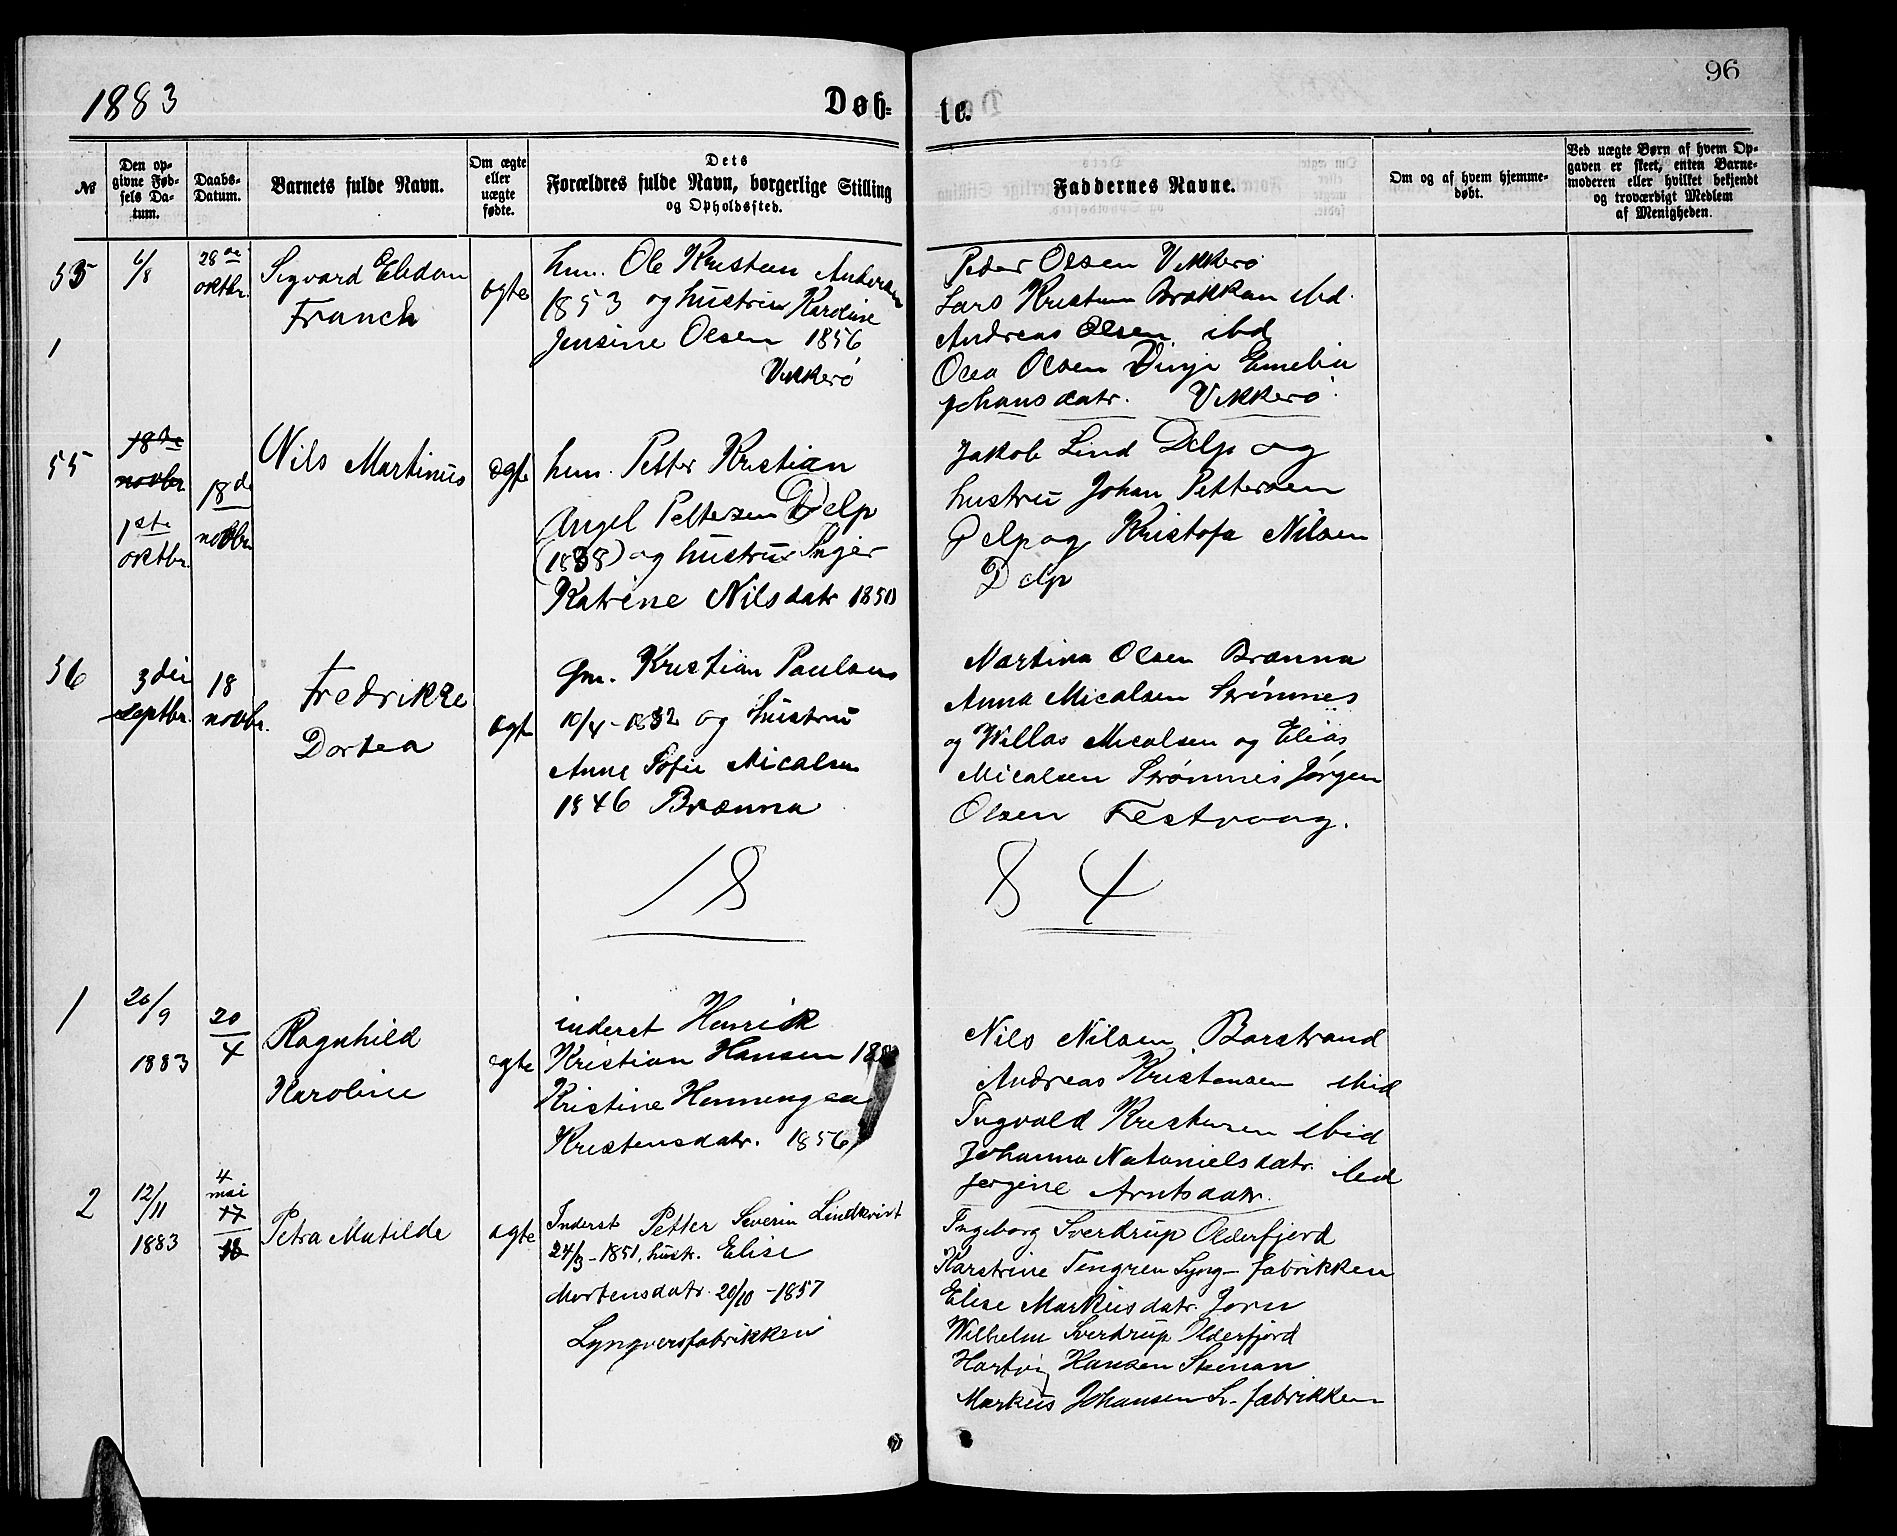 96
1883
Døb-
te.
№
Den op-
givne Fød-
sels Da-
tum.
Daabs-
Datum.
Barnets fulde Navn.
Om ægte
eller
uægte
fødte.
Dets
Forældres fulde Navn, borgerlige Stilling
og Opholdssted.
Faddernes Navne.
Om og af hvem hjemme-
døbt.
Ved uægte Børn af hvem Op-
gaven er skeet, enten Barne-
moderen eller hvilket bekjendt
og troværdigt Medlem
af Menigheden.
55
1
6/8
28de
oktbr.
Sigvard Elidon
Franck
ægte
hm. Ole Kristian Andersen
1853 og hustru Karoline
Jensine Olsen 1856
Vikkerø
Peder Olsen Vikkerø
Lars Kristian Brækkan ibd.
Andreas Olsen ibd
Olea Olsen Emelia
Johansdatr. Vikkerø
55
18de
novbr
1ste
oktbr.
18de
novbr.
Nils Martinus
ægte
hm. Petter Kristian
Angel Pettersen Delp
(1838) og hustru Inger
Katrine Nilsdatr 1850
Jakob Lind Delp og
hustru Johan Pettersen
Delp og Kristofa Nilsen
Delp
56
3die
septbr.
18
novbr.
Fredrikke
Dortea
ægte
Gm. Kristian Paulsen
10/4-1832 og hustru
Anne Sofie Micalsen
1846 Brænna
Martina Olsen Brænna
Anna Micalsen Strømnes
og Willas Micalsen og Elias
Micalsen Strømnes Jørgen
Olsen Festvaag.
18
84
1
20/9
1883
20
4
Ragnhild
Karoline
ægte
inderst Henrik
Kristian Hansen
Kristine Henningsen
Kristensdatr. 1856
Nils Nilsen Barstrand
Andreas Kristensen ibid
Ingvald Kristensen ibid
Johanna Natanielsdatr. ibd
Jergine Arntsdatr.
2
12/11
1883
4
mai
17
18
Petra Matilde
ægte
Inderst Petter Severin Lindkvist
24/3-1851, hustr. Elise
Mortensdatr. 20/10-1857
Lyngversfabrikken
Ingeborg Sverdrup Olderfjord
Karstine Tengren Lyng-fabrikken
Elise Markusdatr. Jorn
Wilhelm Sverdrup Olderfjord
Hartvig Hansen Stenan
Markus Johansen L.-fabrikken